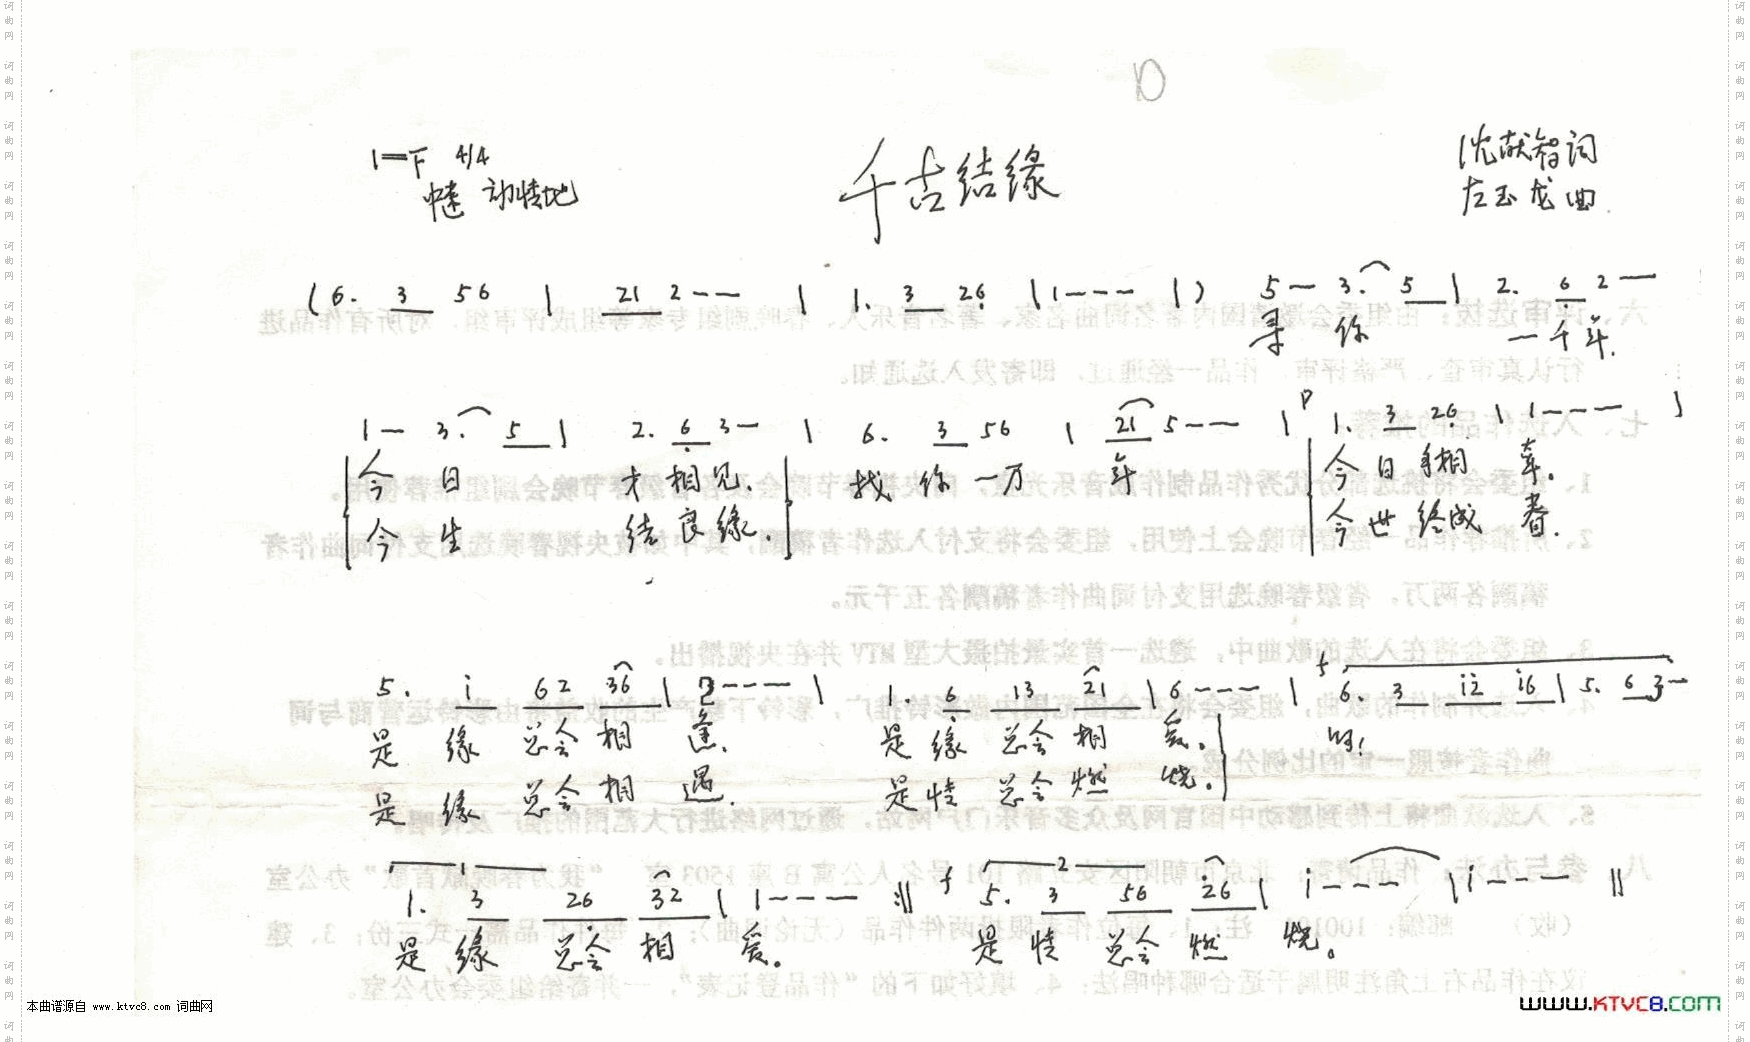 1=F 4/4
中速 动情地
千古结缘
沈献智词
左玉龙曲
(6. 3 56 | 21 2--- | 1. 3 26 | 1--- |) 5- 3. 5 | 2. 6 2-
寻 你 一千年.
1- 3. 5 | 2. 6 3- | 6. 3 56 | 21 5-- | P 1. 3 26 | 1--- |
今 日 才相见. 找 你 一万 年 今日手相 牵。
今 生 结良缘. 今世终成 眷.
5. i 62 36 | 3--- | 1. 6 13 21 | 6--- | f 6. 3 i2 i6 | 5. 6 3-
是 缘 总会 相 逢. 是 缘 总会 相 爱。 啊!
是 缘 总会 相 遇. 是 情 总会 燃 烧。
1 2
1. 3 26 32 | 1--- :|| f 5. 3 56 26 | i--- | i--- ||
是 缘 总会 相 爱。 是 情 总会 燃 烧。
本曲谱源自 www.ktvc8.com 词曲网
www.KTVC8.com